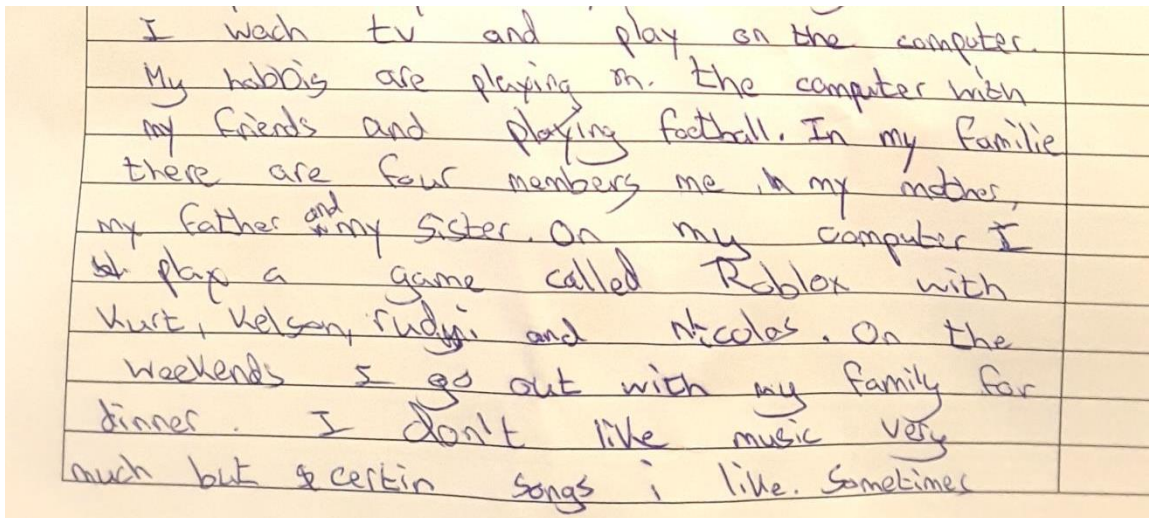 I wach tv and play on the computer.
My hobbis are playing on the computer with
my friends and playing football. In my familie
there are four members me, my mother,
my father and my sister. On my computer I
play a game called Roblox with
Kurt, Kelson, and Nicolas. On the
weekends I go out with my family for
dinner. I don't like music very
much but certin songs i like. Sometimes